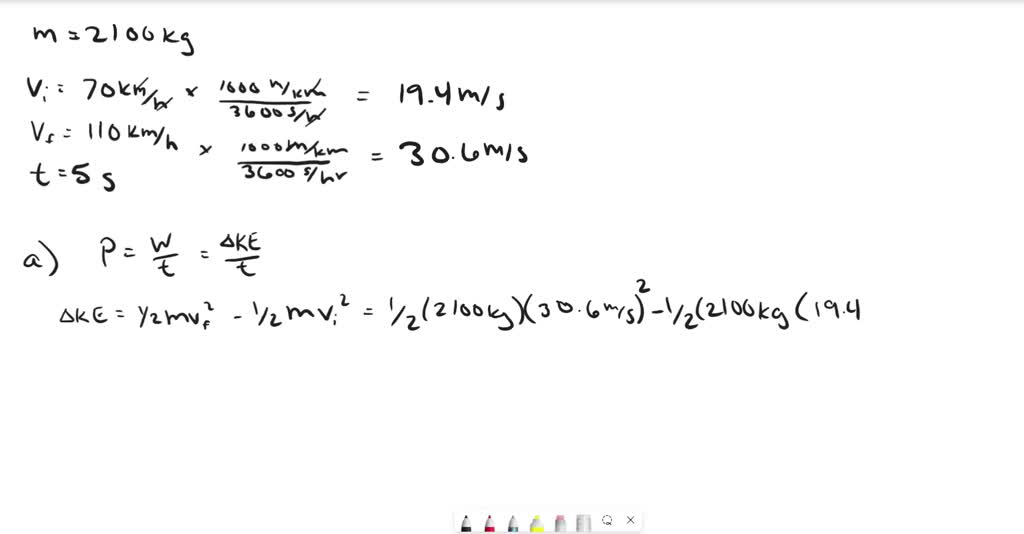 m = 2100 kg
Vi = 70 km/h × 1000 m/km / 3600 s/h = 19.4 m/s
Vf = 110 km/h × 1000 m/km / 3600 s/hr = 30.6 m/s
t = 5 s
a) P = W/t = ΔKE/t
ΔKE = 1/2 mvf² - 1/2 mvi² = 1/2 (2100 kg)(30.6 m/s)² - 1/2 (2100 kg (19.4